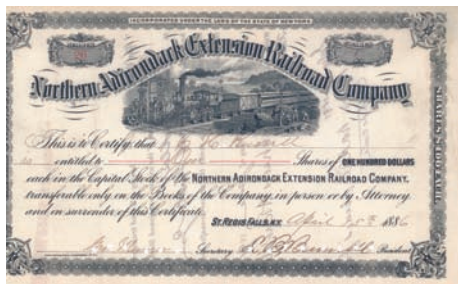 INCORPORATED UNDER THE LAWS OF THE STATE OF NEW YORK
Northern Adirondack Extension Railroad Company
This is to Certify, that
is entitled to Shares of ONE HUNDRED DOLLARS
each in the Capital Stock of the NORTHERN ADIRONDACK EXTENSION RAILROAD COMPANY,
transferable only on the Books of the Company, in person or by Attorney
and in surrender of this Certificate.
ST. REGIS FALLS, N.Y. April 1886
Secretary President
SHARES $100 EACH